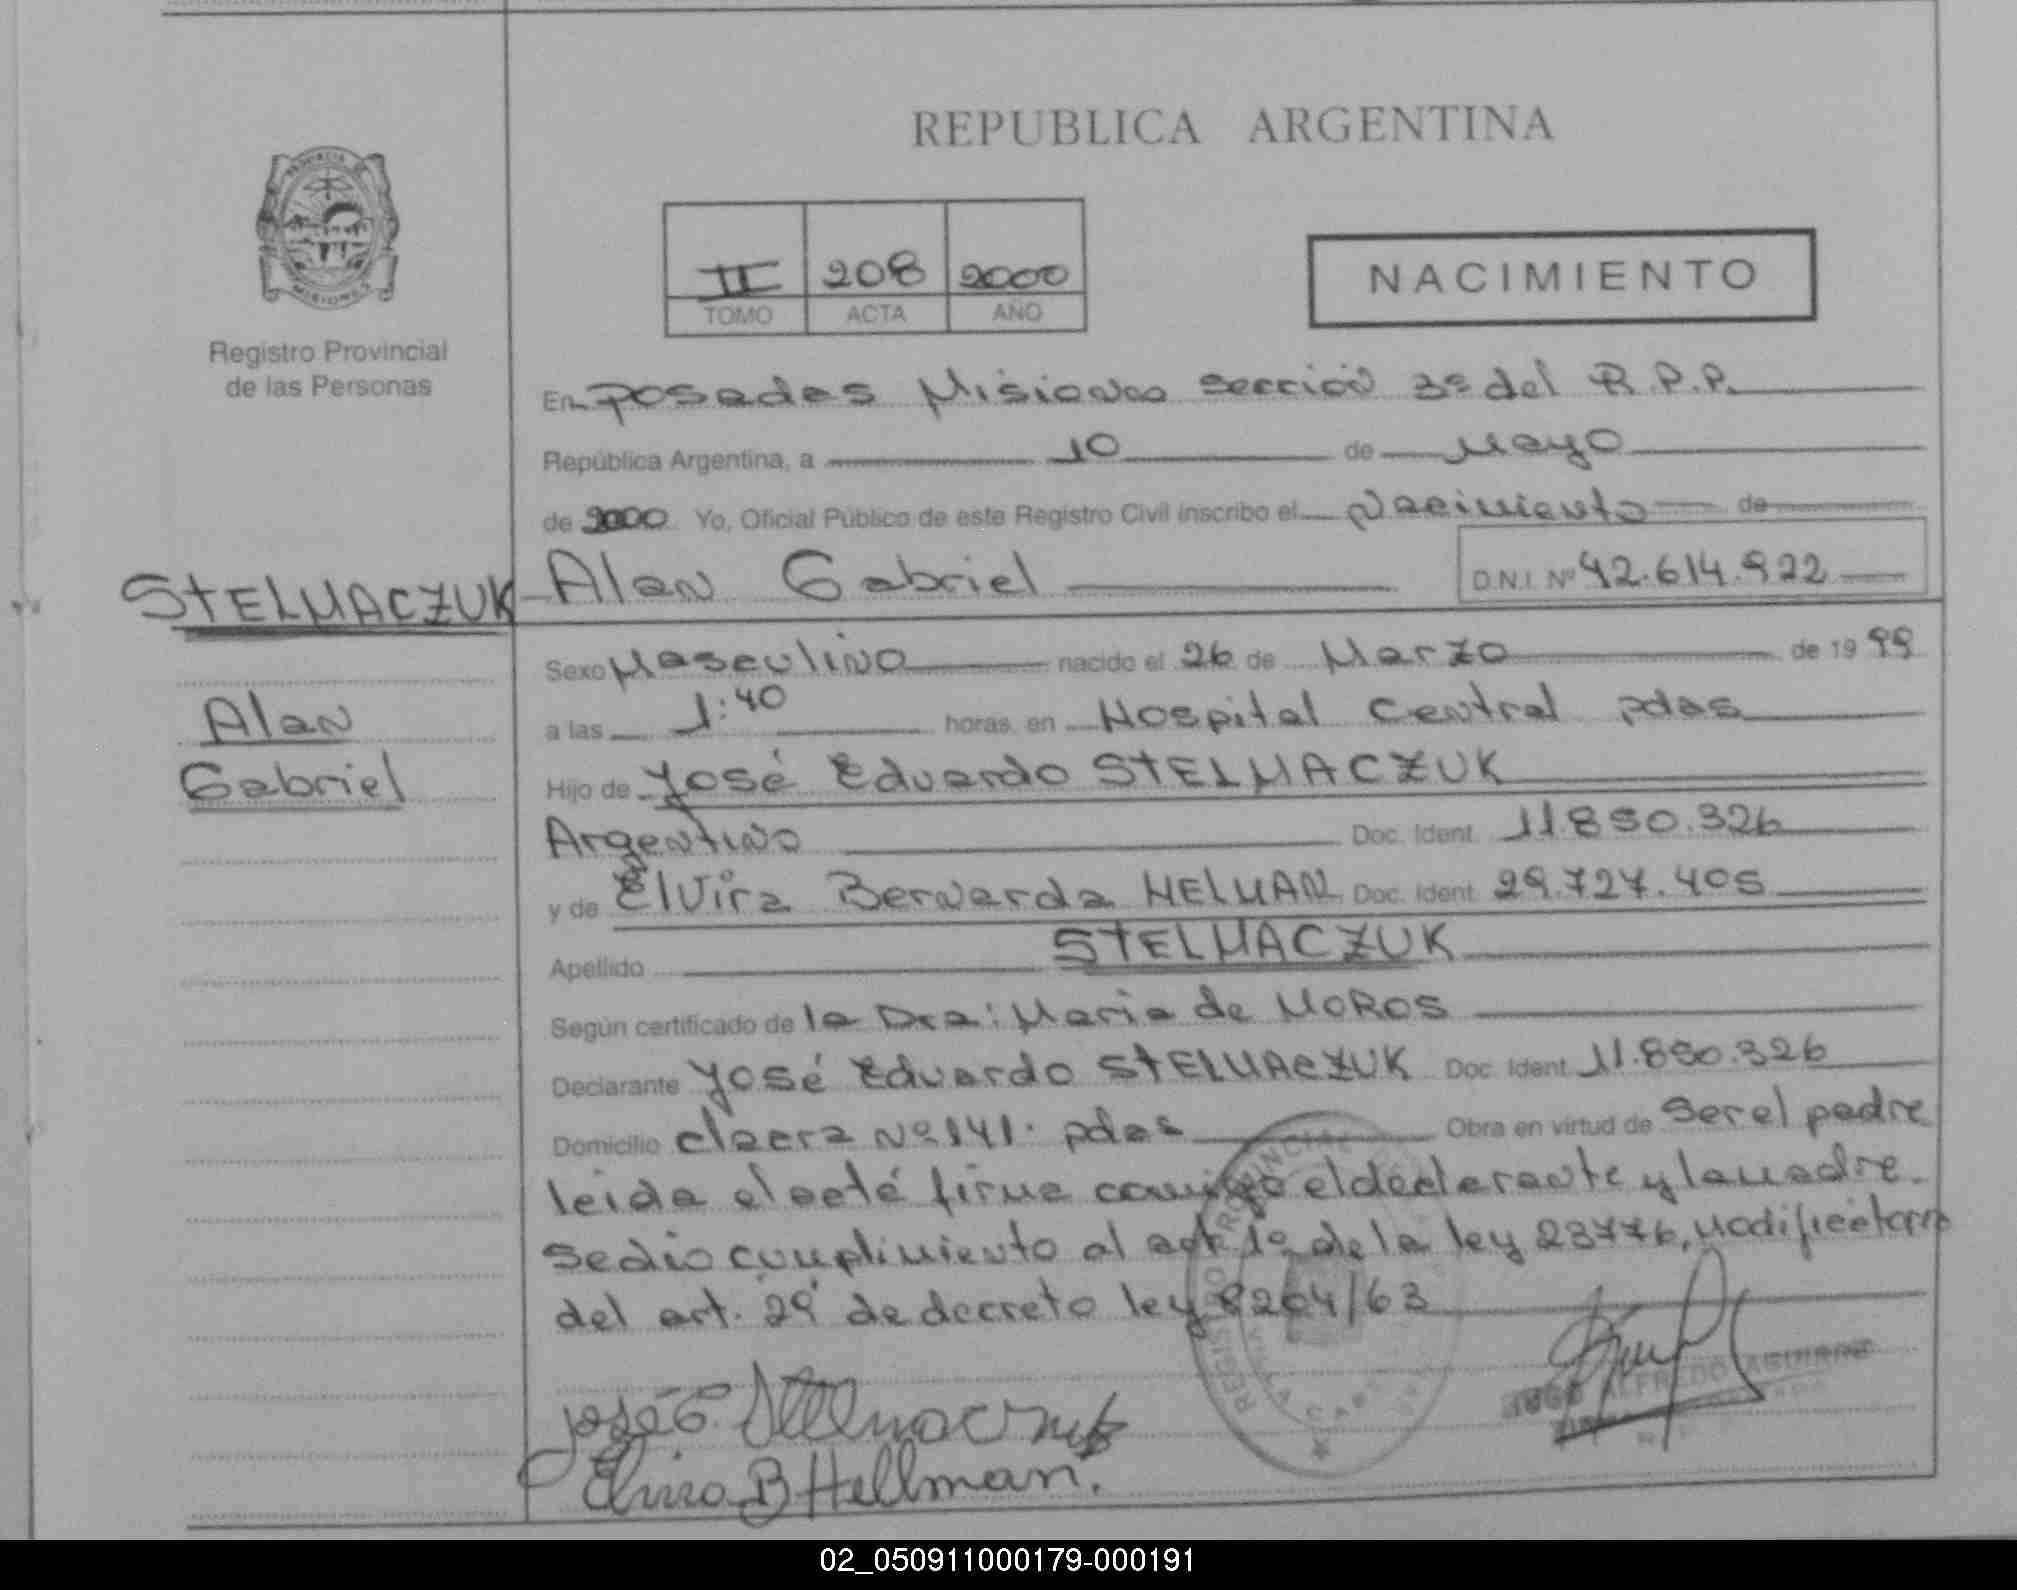 REPUBLICA ARGENTINA
PROVINCIA
MISIONES
Registro Provincial
de las Personas
II 208 2000
TOMO ACTA AÑO
NACIMIENTO
En Posadas Misiones sección 3ª del R.P.P.
República Argentina, a 10 de Mayo
de 2000 Yo, Oficial Público de este Registro Civil inscribo el Nacimiento de
STELMACZUK Alan Gabriel D.N.I. Nº 42.614.922
Sexo Masculino nacido el 26 de Marzo de 19 99
Alan
a las 1:40 horas, en Hospital Central pdas
Gabriel
Hijo de José Eduardo STELMACZUK
Argentino Doc. Ident. 11.890.326
y de Elvira Bernarda HELMAN Doc. Ident. 29.727.405
Apellido STELMACZUK
Según certificado de la Dra: Maria de MOROS
Declarante José Eduardo STELMACZUK Doc. Ident. 11.890.326
Domicilio Nº 141. pdas Obra en virtud de Ser el padre
leida el acta firma conmigo el declarante y la madre.
se dio cumplimiento al art. 1º de la ley 23776, modificatoria
del art. 29 de decreto ley 8204/63
José E. Stelmaczuk
Elvira B Hellman.
ALFREDO AGUIRRE
02_050911000179-000191